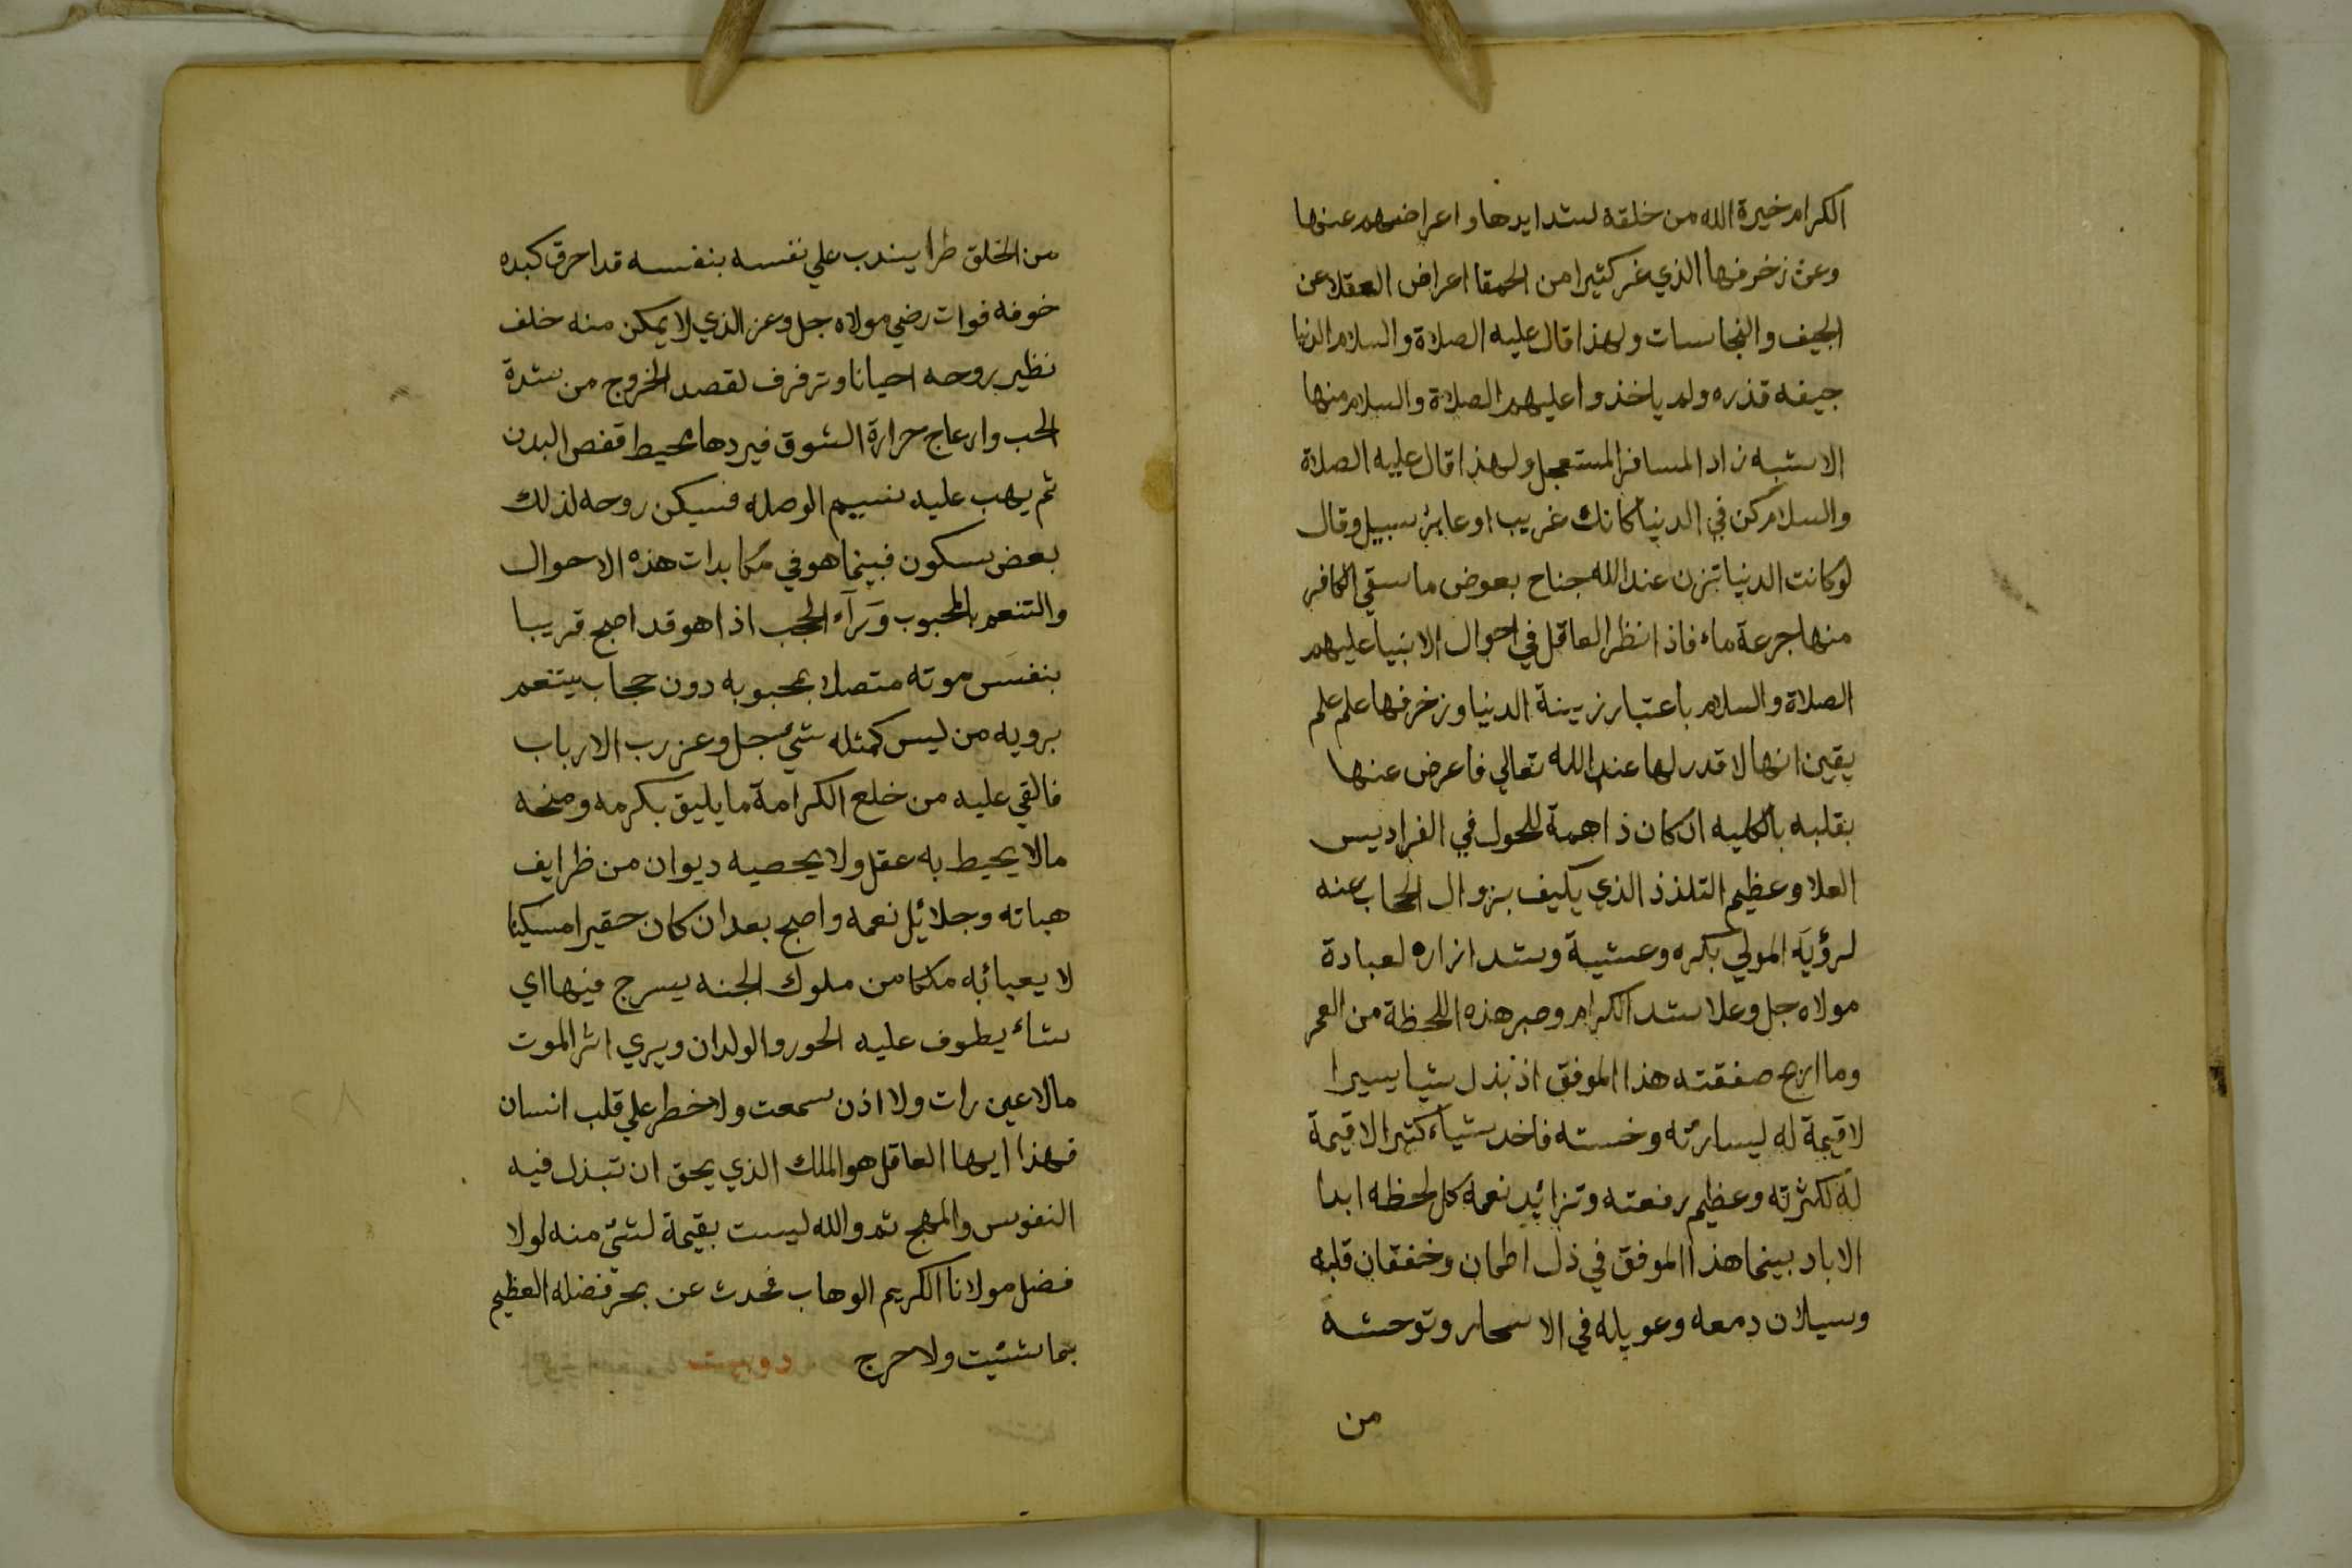 الكرام خيرة الله من خلقه لشدايدها واعراضهم عنها
وعن زخرفها الذي غر كثيرا من الحمقا اعراض العقلا عن
الجيف والنجاسات ولهذا قال عليه الصلاة والسلام الدنيا
جيفه قذره ولم ياخذوا عليهم الصلاة والسلام منها
الا شبه زاد المسافر المستعجل ولهذا قال عليه الصلاة
والسلام كن في الدنيا كانك غريب او عابر سبيل وقال
لو كانت الدنيا تزن عند الله جناح بعوض ما سقي الكافر
منها جرعة ماء فاذا نظر العاقل في احوال الانبيا عليهم
الصلاة والسلام باعتبار زينة الدنيا وزخرفها علم علم
يقين انها لا قدر لها عند الله تعالي فاعرض عنها
بقلبه بالكليه ان كان ذا همة للحول في الفراديس
العلا وعظيم التلذذ الذي يكيف بزوال الحاب عنه
لرؤية المولي بكره وعشية وشد ازاره لعبادة
مولاه جل وعلا شد الكرام وصبر هذه اللحظة من العمر
وما اربح صفقته هذا الموفق اذ بذل شيا يسيرا
لا قيمة له ليسارته وخسته فاخد شياء كثيرا لا قيمة
له لكثرته وعظيم رفعته وتزائيد نعمه كل لحظه ابدا
الاباد بينما هذا الموفق في ذل اطمان وخفقان قلبه
وسيلان دمعه وعويله في الاسحار وتوحشه
من
من الخلق طرا يندب علي نفسه بنفسه قد احرق كبده
خوفه فوات رضي مولاه جل وعز الذي لا يمكن منه خلف
نظير بروحه احيانا وترفرف لقصد الخروج من شدة
الحب وارعاج حرارة الشوق فيردها محيط قفص البدن
ثم يهب عليه نسيم الوصله فسيكن روحه لذلك
بعض سكون فبينما هو في مكابدات هذه الاحوال
والتنعم بالمحبوب وراء الحجب اذا هو قد اصبح قريبا
بنفس موته متصلا بمحبوبه دون حجاب يتنعم
برويه من ليس كمثله شئ جل وعز رب الارباب
فالقي عليه من خلع الكرامة ما يليق بكرمه ومنحه
مالا يحيط به عقل ولا يحصيه ديوان من ظرايف
هباته وجلائيل نعمه واصبح بعد ان كان حقيرا مسكينا
لا يعبائبه ملكا من ملوك الجنه يسرح فيها اي
شاء يطوف عليه الحور والولدان ويري اثر الموت
مالا عين رات ولا اذن سمعت ولا خطر علي قلب انسان
فهذا ايها العاقل هو الملك الذي يحق ان تبذل فيه
النفوس والمهج ثم والله ليست بقيمة لشئ منه لولا
فضل مولانا الكريم الوهاب فحدث عن بحر فضله العظيم
بما شئيت ولا حرج